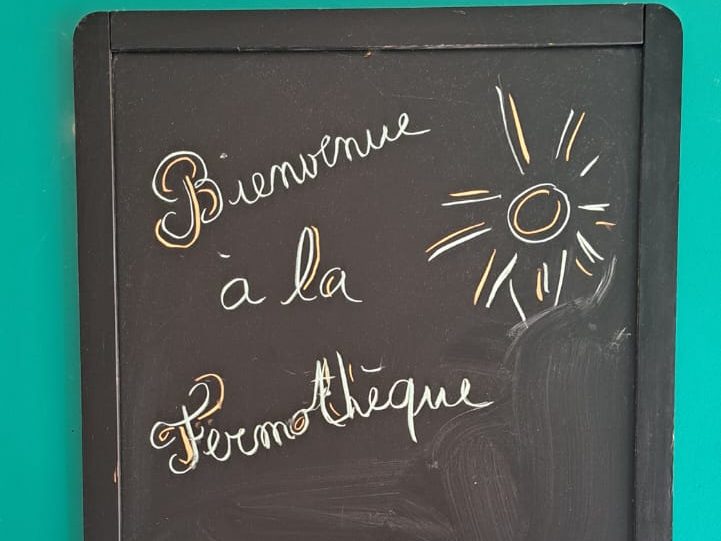 Bienvenue
à la
Fermothèque